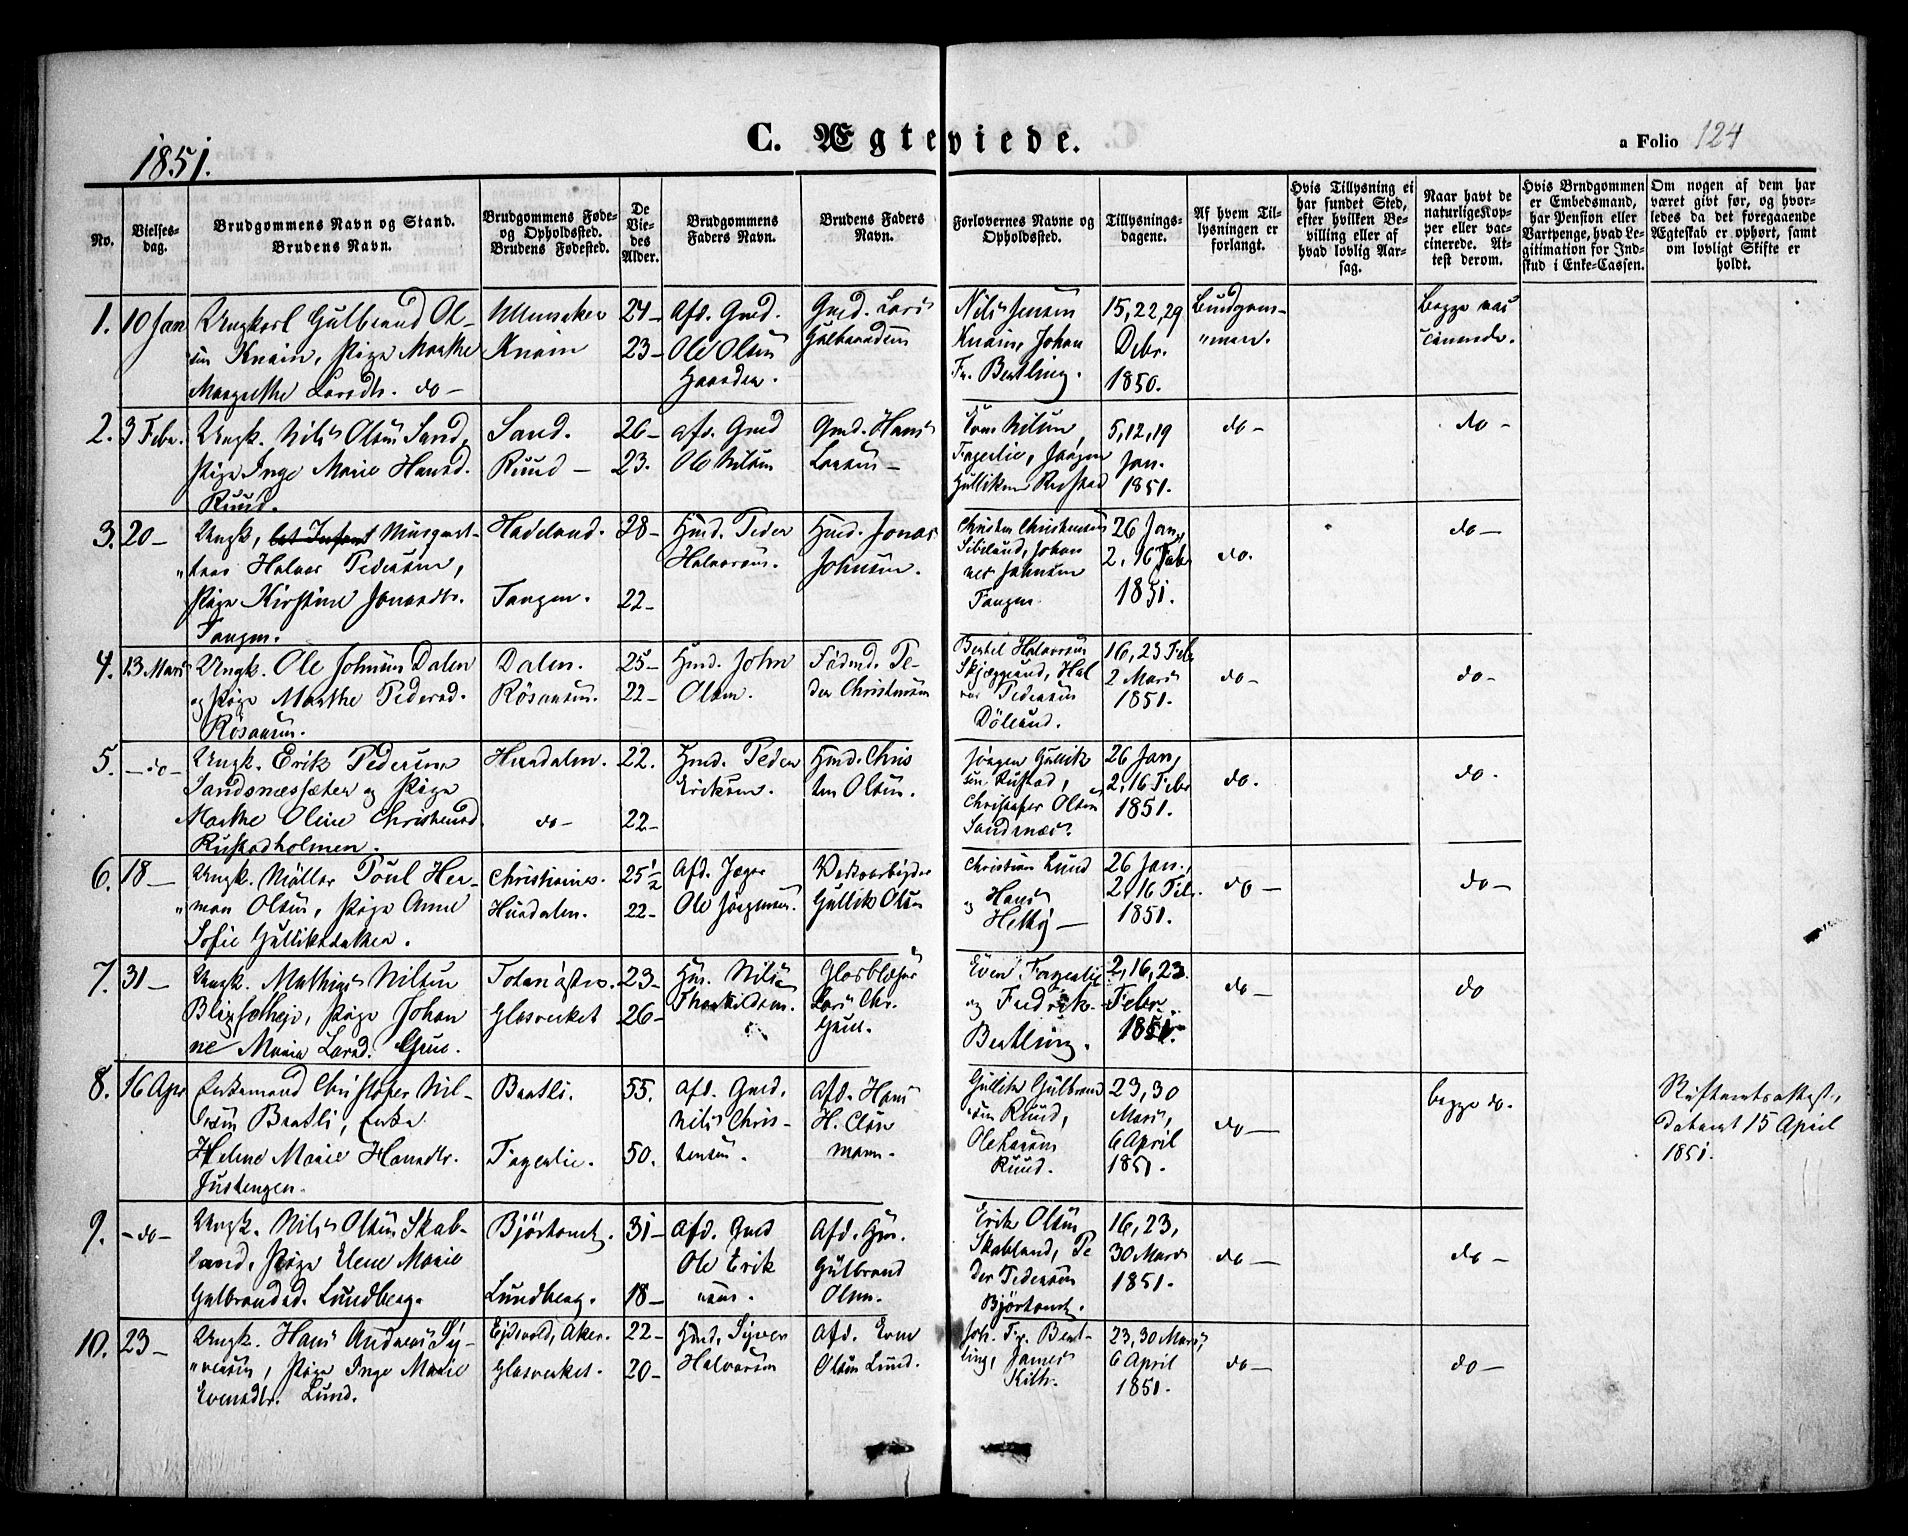 C. Ægteviede.
1851.
a Folio 124
No.
Vielses-
dag.
Brudgommens Navn og Stand.
Brudens Navn.
Brudgommens Føde-
og Opholdssted.
Brudens Fødested.
De
Vie-
des
Alder.
Brudgommens
Faders Navn.
Brudens Faders
Navn.
Forlovernes Navne og
Opholdssted.
Tillysnings-
dagene.
Af hvem Til-
lysningen er
forlangt.
Hvis Tillysning ei
har fundet Sted,
efter hvilken Be-
villing eller af
hvad lovlig Aar-
sag.
Naar havt de
naturlige Kop-
per eller vac-
cinerede. At-
test derom.
Hvis Brudgommen
er Embedsmand,
har Pension eller
Vartpenge, hvad Le-
gitimation for Ind-
skud i Enke-Cassen.
Om nogen af dem har
været givt før, og hvor-
ledes da det foregaaende
Ægteskab er ophørt, samt
om lovligt Skifte er
holdt.
1. 10 Jan
Ungkarl Gulbrand Ol-
sen Knain, Pige Marthe
Margrethe Larsdtr. do -
Ullensaker
Knain
24-
23-
Afd. Gmd.
Ole Olsen
Gmd. Lars
Gulbrandsen
Nils Jensen
Knain, Johan
Fr. Bertling.
15, 22, 29
Debr.
1850.
Brudgom-
"men.
Begge vac
cinerede.
2. 3 Febr.
Ungk. Nils Olsen Sand,
Pige Inge Marie Hansd.
Ruud.
Sand.
Ruud -
26-
23.
afd. Gmd
Ole Nilsen
Gmd. Hans
Larsen -
Nilsen
Fagerlie, Jørgen
Gulliksen Rustad
5, 12, 19
Jan.
1851.
do -
do -
3. 20 -
Ungk,
Halvor Pedersen,
Pige Kirstine Jonasdtr.
Tangen.
Hadeland.
Tangen.
28-
22-
Hmd. Peder
Halvorsen.
Hmd. Jonas
Johnsen.
Christen Christensen
Johan
nes Johnsen
Tangen.
26 Jan,
2, 16 Febr
1851.
do.
do -
4. 13 Mars
Ungk. Ole Johnsen Dalen
og Pige Marthe Pedersd.
Røsaasen.
Dalen.
Røsaasen.
25-
22-
Hmd. John
Olsen.
Pe-
der Christensen
Bertel Halvorsen
Hal
vor Pedersen
16, 23 Feb
2 Mars
1851.
do -
do -
5. - do -
Ungk. Erik Pedersen
Sandsnessæter og Pige
Marthe Oline Christensd.
Rustadholmen.
Hurdalen.
do -
22.
22-
Hmd. Peder
Eriksen.
Hmd. Chris
ten Olsen.
Jørgen Gullik
sen Rustad,
Christofer Olsen
Sandsnes.
26 Jan,
2, 16 Febr
1851.
do.
do.
6. 18 -
Ungk. Møller Poul Her-
"man Olsen, Pige Anne
Sofie Gulliksdatter.
Christiania.
Hurdalen.
25 1/2
22-
Afd. Jæger
Ole Jørgensen.
Verksarbejder
Gullik Olsen
Christian Lund
og Hans
26 Jan.,
2, 16 Feb.
1851.
do -
do -
7. 31 -
Ungk. Mathias Nilsen
Pige Johan
ne Marie Larsd.
Glasverket
23-
26-
Nils
Glasblæser
Lars Chr.
Even Fagerlie
og Fredrik
Bertling.
2, 16, 23
Febr.
1851.
do -
do
8. 16 Apr
Enkemand Christofer Nil-
sen Bratli, Enke
Helene Marie Hansdtr.
Justengen.
Bratli.
Fagerlie.
55.
50.
afd. Gmd.
Nils Chris-
tensen.
afd. Hans
H. Clas
mann.
Gullik Gulbrand
sen Ruud,
Ole Larsen
Ruud.
23, 30
Mars,
6 April
1851.
do -
begge do.
Skifteretsattest,
dateret 15 April
1851.
9. - do -
Ungk. Nils Olsen Skab-
land, Pige Elene Marie
Gulbrandsd. Lundberg.
Bjørtomt.
Lundberg.
31-
18-
afd. Gmd
Ole Erik
sen.
Afd.
Gulbrand
Olsen.
Erik Olsen
Skabland, Pe
der Pedersen
Bjørtomt.
16, 23,
30 Mars
1851.
do -
do -
10. 23 -
Ungk. Hans Andreas Sy-
"versen, Pige Inge Marie
Evensdtr. Lund.
Ejdsvold, Aker.
Glasverket.
22-
20-
Hmd. Syver
Halvorsen
Afd. Even
Olsen Lund.
Joh. Fr. Bert-
ling, James
Kith.
23, 30 Mars,
6 April
1851.
do -
do -